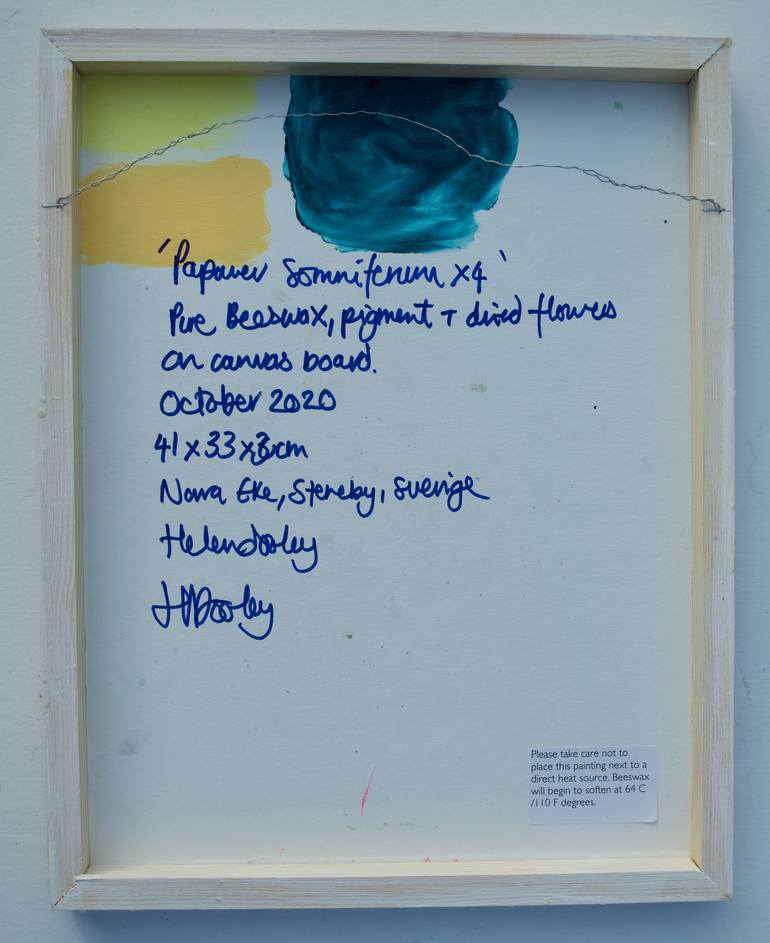 'Papaver Somniferum x4'
Pure Beeswax, pigment + dried flowers
on canvas board.
October 2020
41 x 33 x 3cm
Norra Eke, Steneby, Sverige
Helen Dooley
HDooley
Please take care not to
place this painting next to a
direct heat source. Beeswax
will begin to soften at 64 C
/110 F degrees.